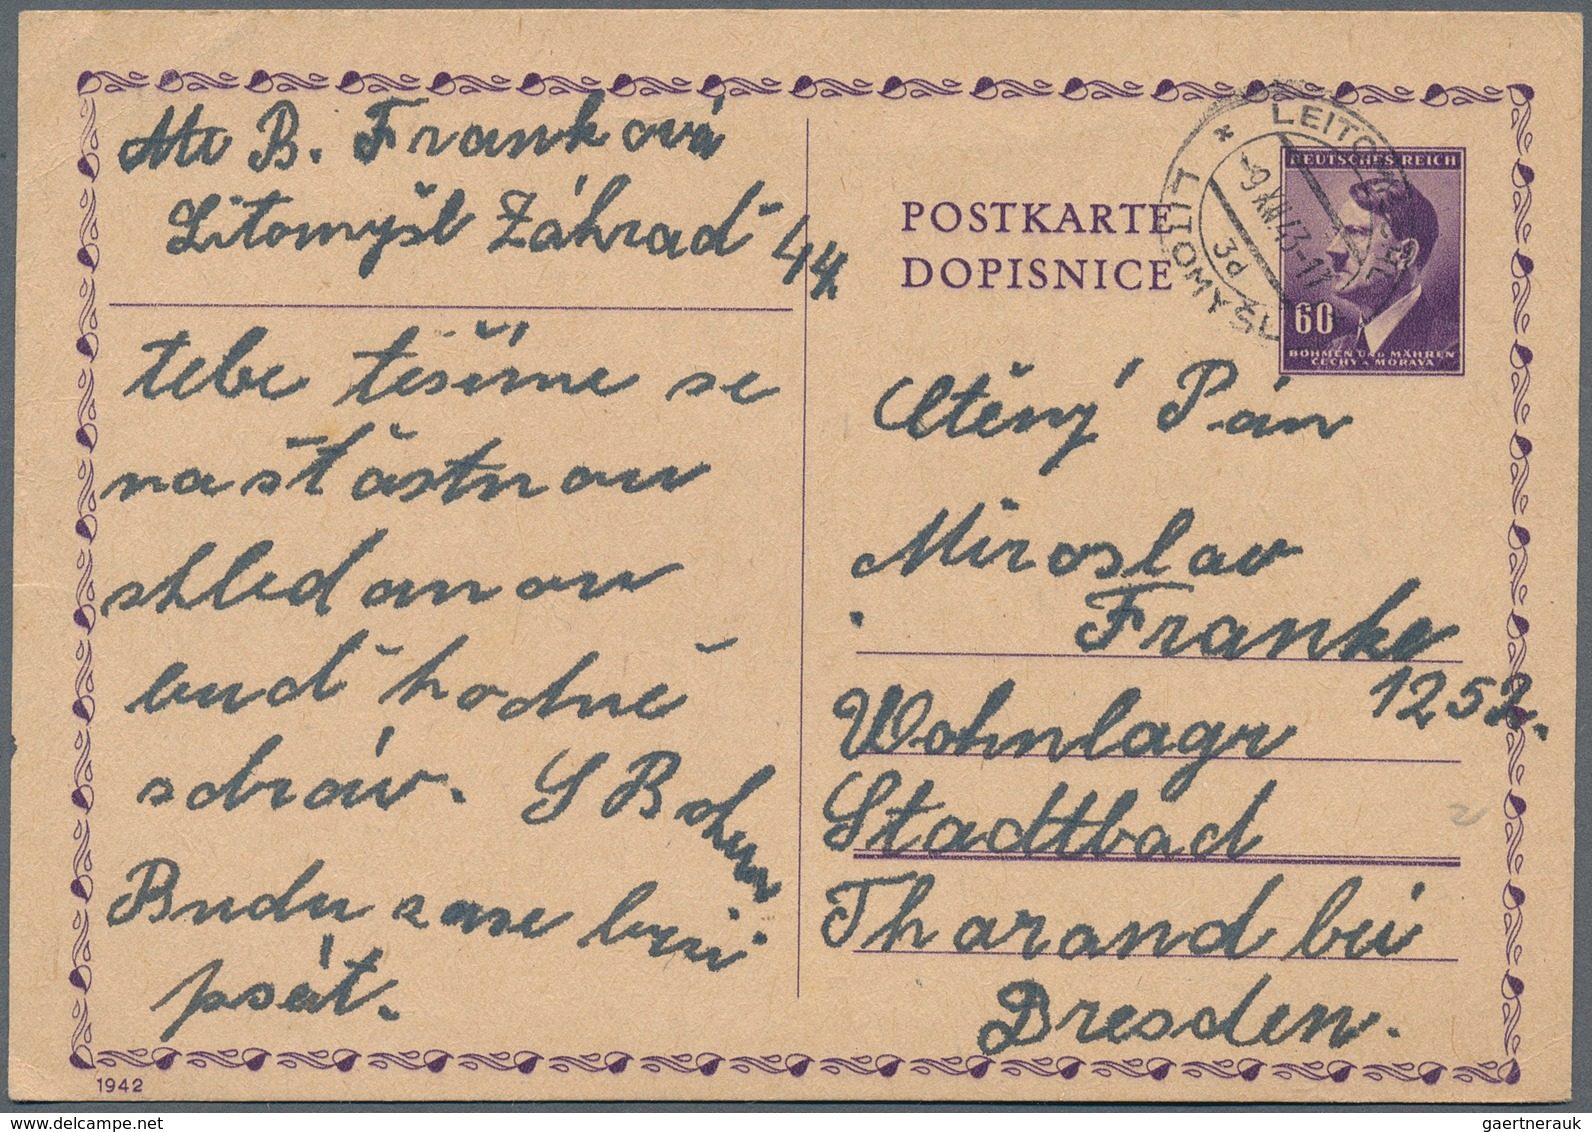 B. Franková
Litomyšl Záhrad 44.
tebe těšíme se
na šťástnou
shledanou
buď hodně
zdráv. S Bohem
Budu zase brzi
psát.
1942
POSTKARTE
DOPISNICE
LEITOMISCHL
LITOMYŠL
9.XII.43-17
3d
DEUTSCHES REICH
60
BÖHMEN UND MÄHREN
ČECHY A MORAVA
Ctěný Pán
Miroslav
Franke
1252.
Wohnlagr
Stadtbad
Tharand bei
Dresden.
gaertnerauk @ www.delcampe.net